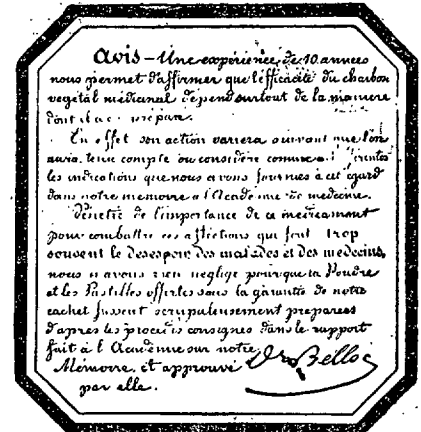 Avis – Une expérience de 10 années
nous permet d'affirmer que l'efficacité du charbon
végétal médicinal dépend surtout de la manière
dont il a préparé.
En effet son action variera suivant que l'on
aura tenu compte ou considéré comme
les indications que nous avons fournies à cet égard
dans notre mémoire à l'Académie de médecine.
Pénétré de l'importance de ce médicament
pour combattre ces affections qui font trop
souvent le désespoir des malades et des médecins,
nous n'avons rien négligé pour que la Poudre
et les Pastilles offertes sous la garantie de notre
cachet fussent scrupuleusement préparées
d'après les procédés consignés dans le rapport
fait à l'Académie sur notre
Mémoire, et approuvé
par elle.
Dr Belloc